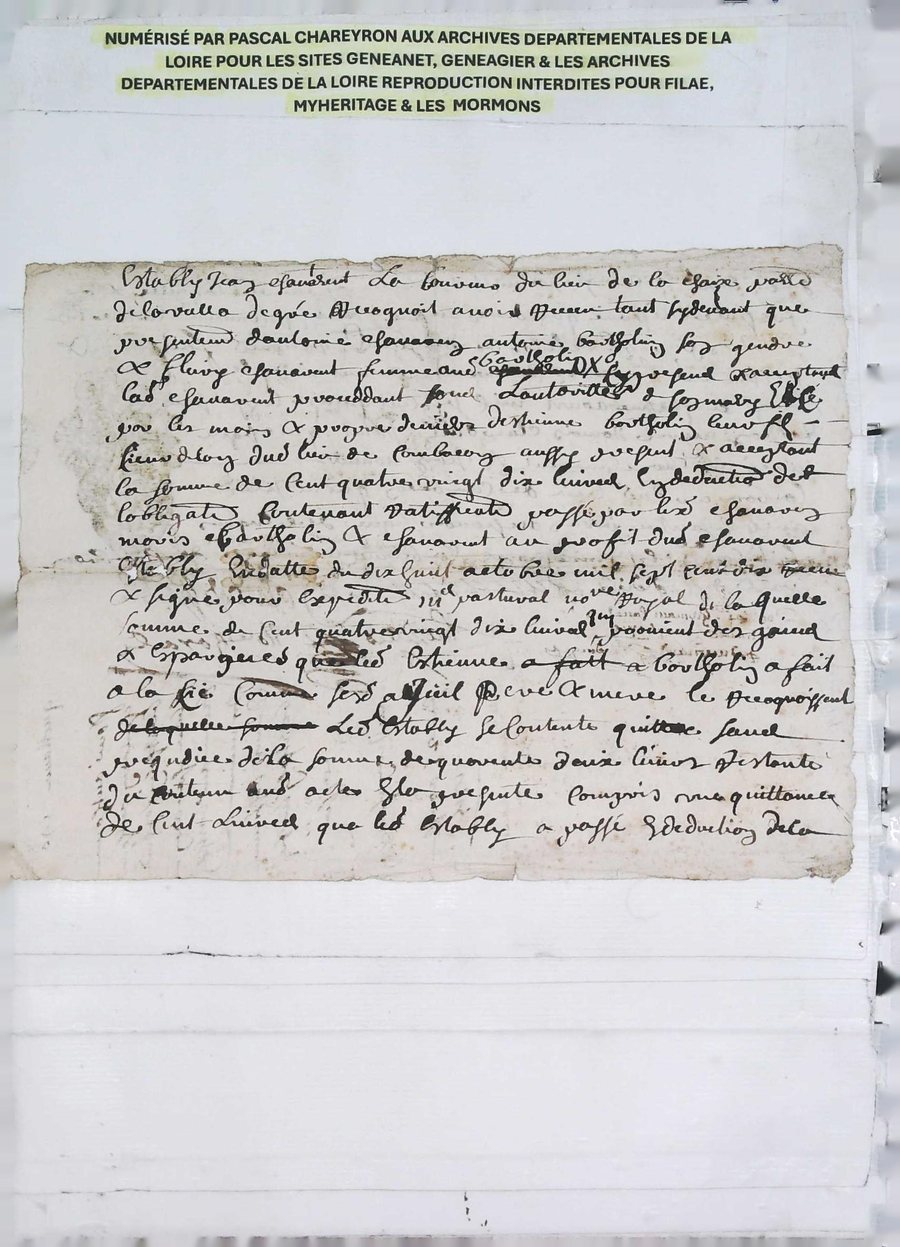 NUMÉRISÉ PAR PASCAL CHAREYRON AUX ARCHIVES DEPARTEMENTALES DE LA
LOIRE POUR LES SITES GENEANET, GENEAGIER & LES ARCHIVES
DEPARTEMENTALES DE LA LOIRE REPRODUCTION INTERDITES POUR FILAE,
MYHERITAGE & LES MORMONS
Estably Jean chanavent La du lieu de la
de recognoit avoir receu tant sydevant que
d'antoine antoine bartholin son gendre
bartholin
& fleury chanavent femme aud
lad chanavent proceddant soubs L'autorité de son mary
par les mains & propre deniers d'estienne bartholin leur fil
dud lieu de aussy present & acceptant
la somme de Cent quatre vingt dix livres En deduction de
l'obligation Contenant passé par
& bartholin & chanavent au profit dud chanavent
Estably En datte du dix huit octobre mil sept cent dix
& signé pour Expedition pasturel Royal de la quelle
somme de Cent quatre vingt dix livres provient des gains
& Espargnes que led Estienne a fait a bartholin a fait
a la Comme pere & mere le recognoissent
de laquelle somme Led Estably se Contente quitte sans
prejudice de la somme de quarente deux livres restante
du contenu aud acte En la presente Compris une quittance
de Cent Livres que led Estably a passé En deduction de la